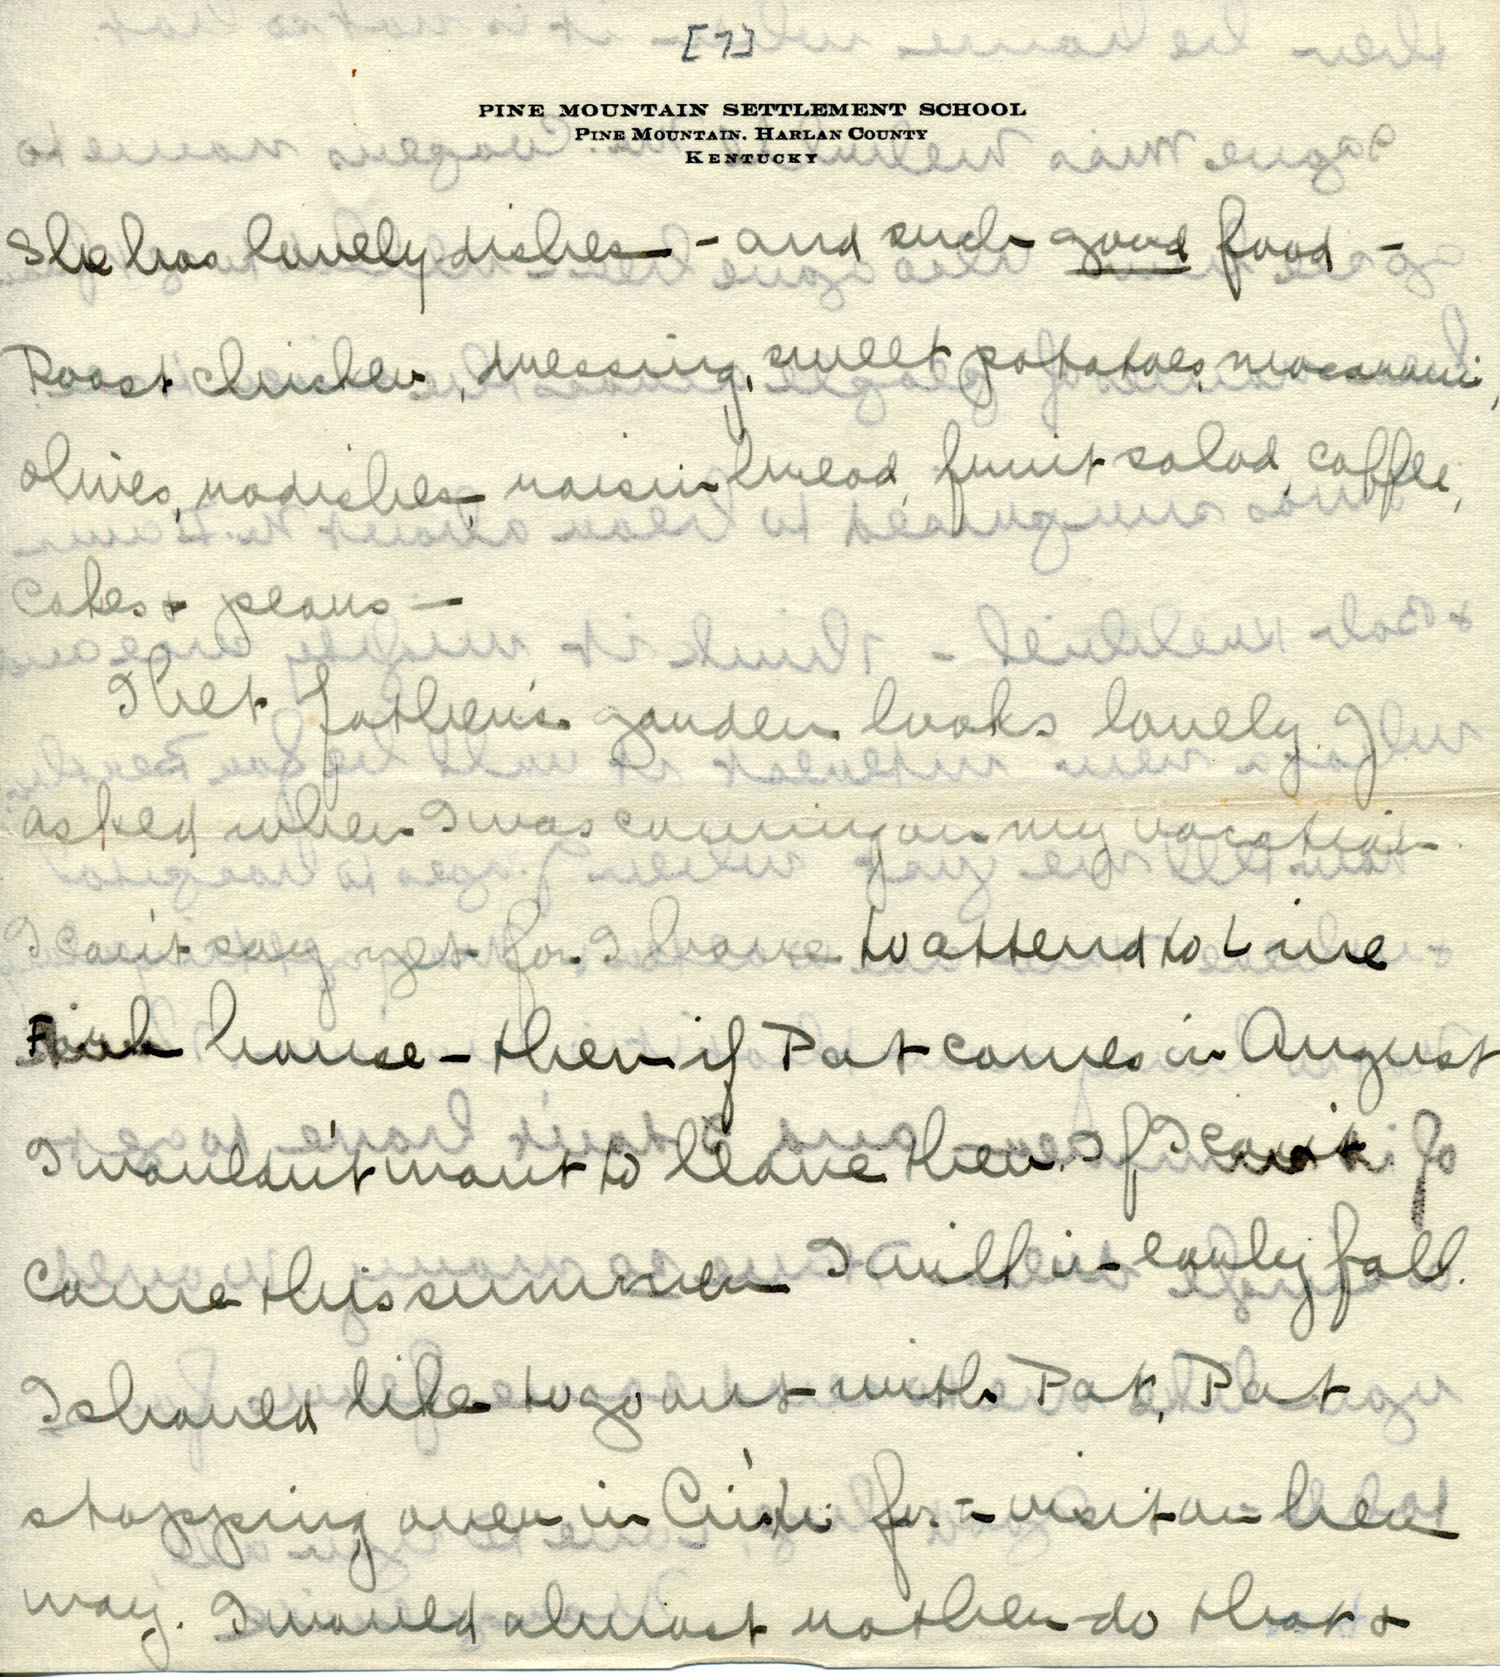 [7]
PINE MOUNTAIN SETTLEMENT SCHOOL
PINE MOUNTAIN, HARLAN COUNTY
KENTUCKY
She has lovely dishes - and such good food -
Roast chicken, dressing, sweet potatoes, macaroni,
olives, radishes, raisin bread, fruit salad, coffee,
cakes & pears -
I bet father's garden looks lovely. J.
asked when I was coming on my vacation.
I can't say yet for I have to attend to Line
Fork house - then if Pat comes in August
I wouldn't want to leave then. If I can't
come this summer I will in early fall.
I should like to go out with Pat, Pat
stopping over in Cin'ti for a visit on her
way. I would almost rather do that &